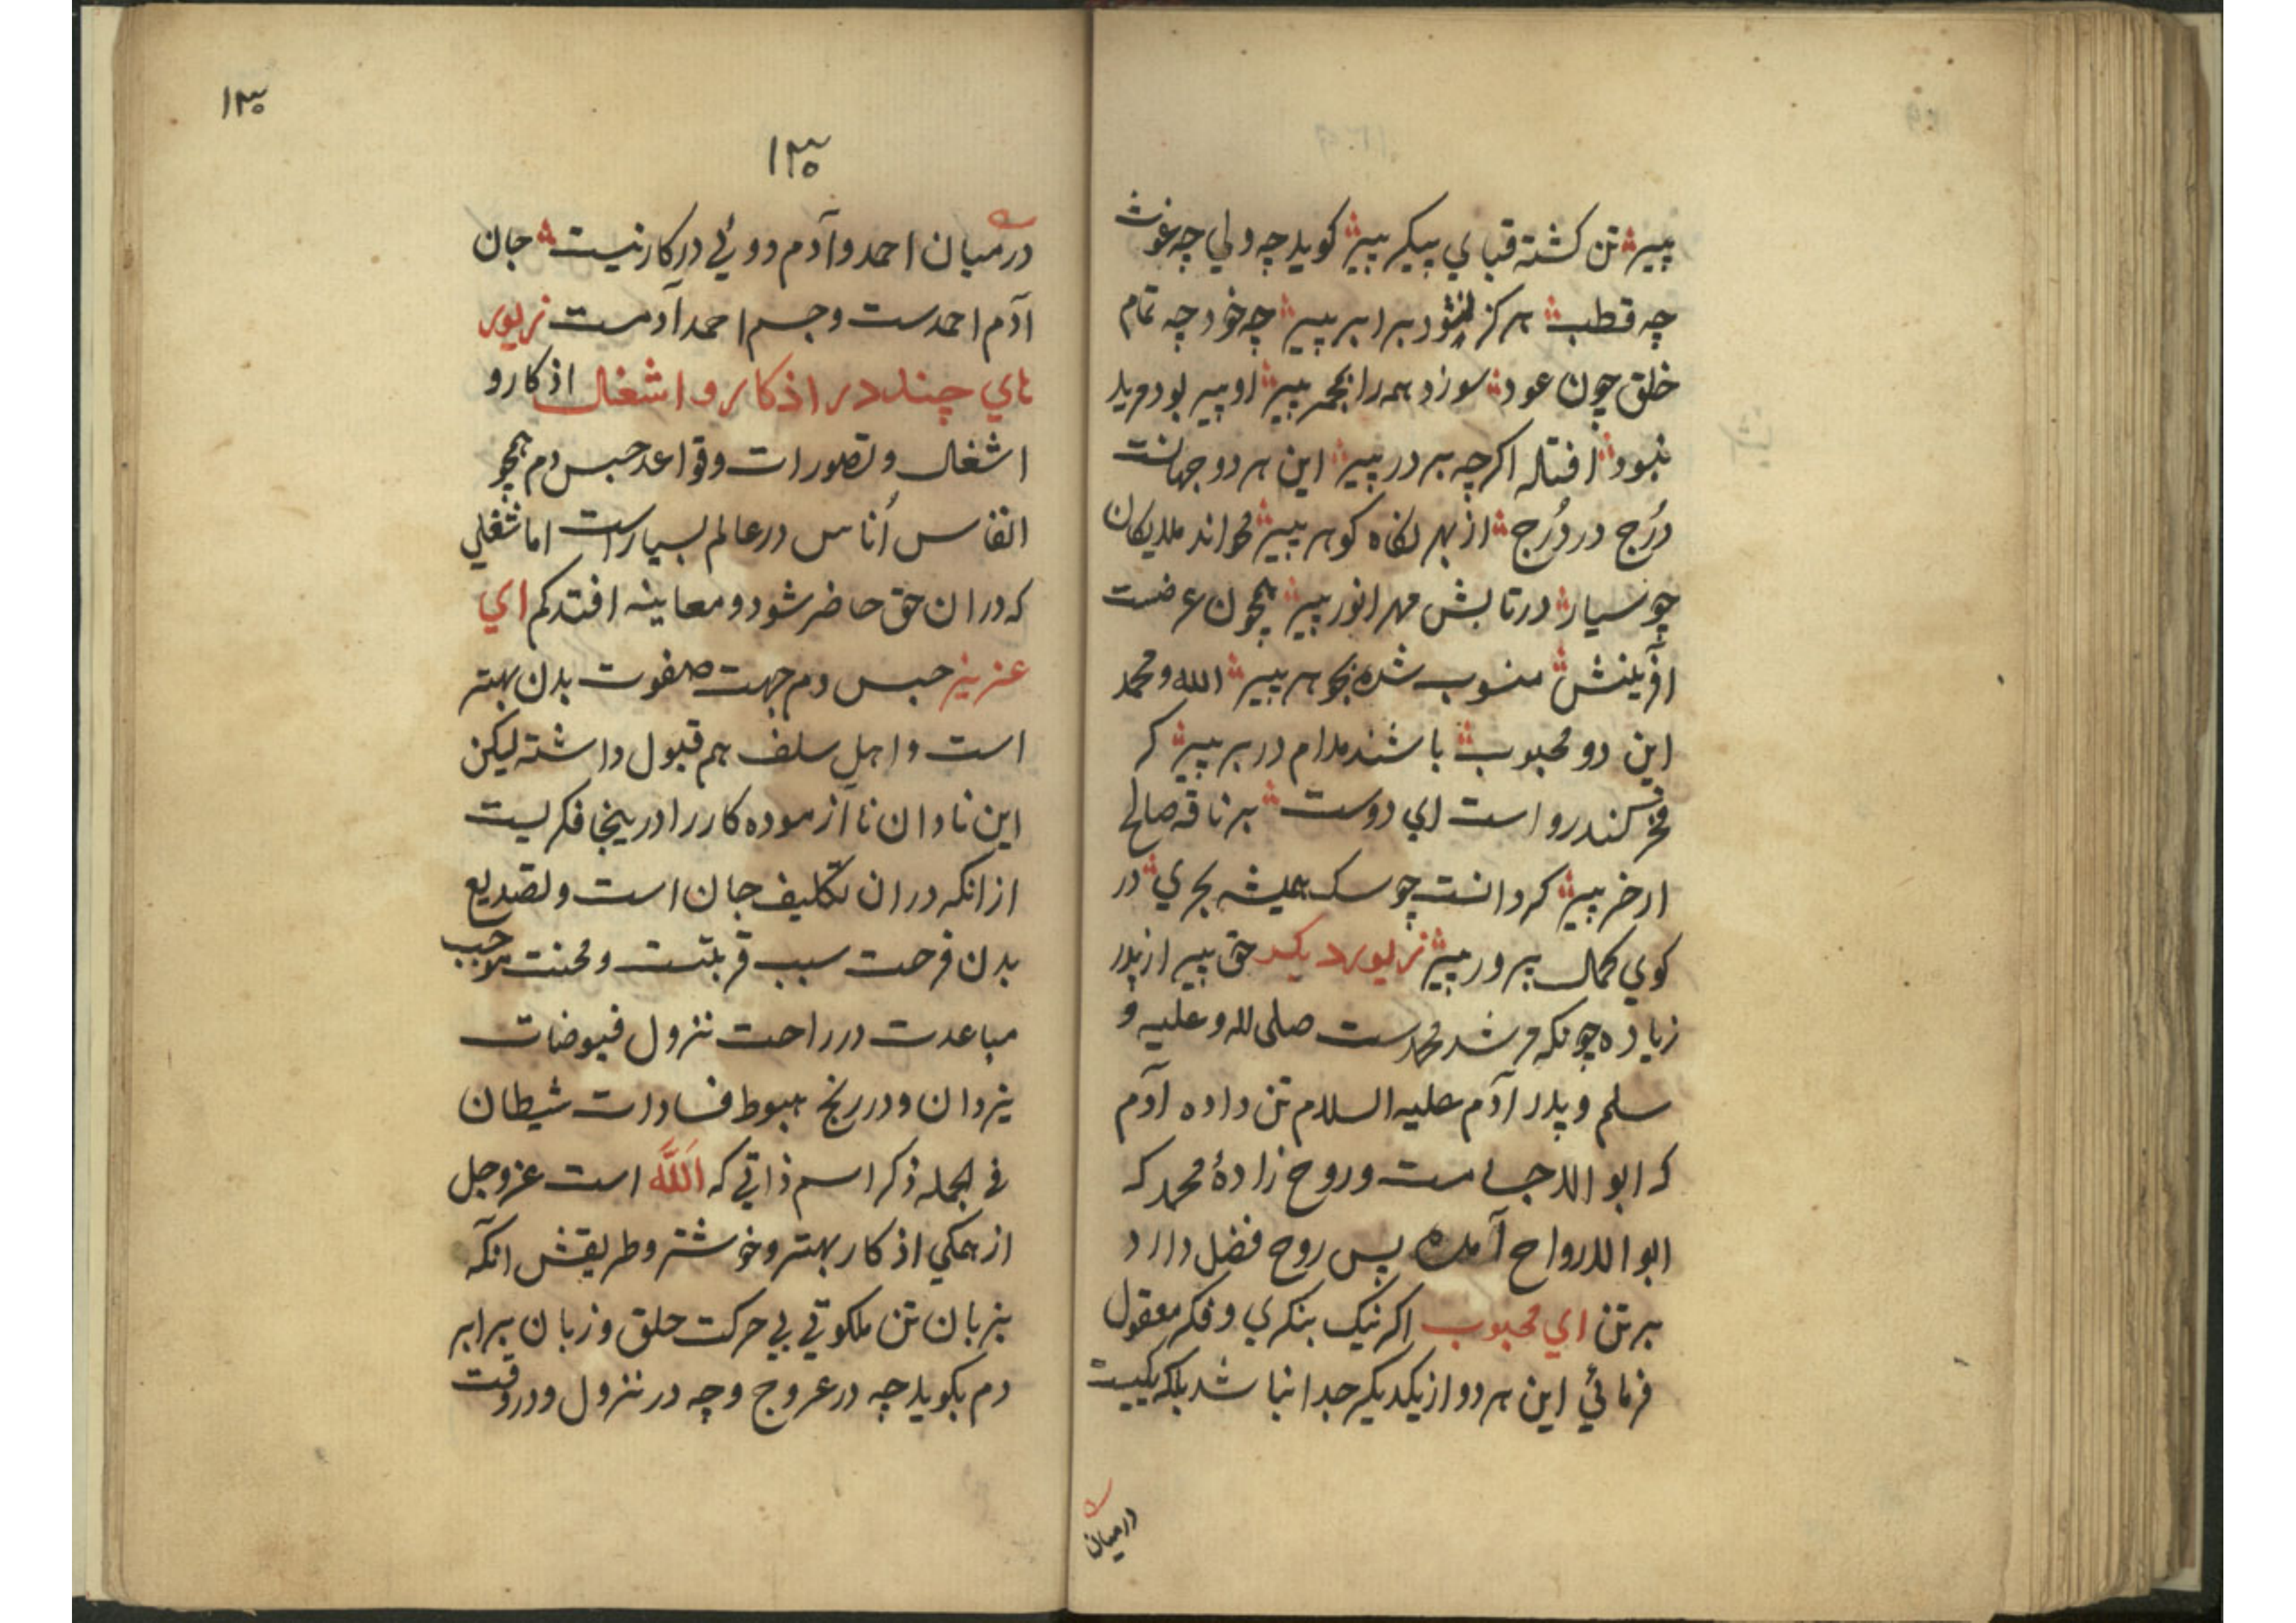 پیر تن کشته قبای پیکر پیر کوید چه ولی چه غوث
چه قطب هرکز نشود برابر پیر چه خود چه تمام
خلق چون عود سوزد همه را بجمر پیر او پیر بود مرید
نبود افتد اکرچه بر در پیر این هر دو جهانست
دُرج در دُرج از بهر نکاه کوهر پیر محواند ملایکان
چو سیار در تابش مهر انور پیر همچون عرضست
آفرینش منسوب شده بجوهر پیر الله و محمد
این دو محبوب باشند مدام در بر پیر کر
فخر کند رواست ای دوست بر ناقه صالح
ار خر پیر کردانست چو سک همیشه بحری در
کوی کمال پرور پیر زیور دیکر حق پیر از پدر
زیاده چونکه مرشد محمدست صلی الله و علیه و
سلم و پدر آدم علیه السلام تن داده آدم
که ابو الاجسامست و روح زادهٔ محمد که
ابو الارواح آمده پس روح فضل دارد
بر تن ای محبوب اکر نیک بنکری و فکر معقول
فرمائی این هر دو از یکدیکر جدا نباشد بلکه یکیست
درمیان
۱۳۰
۱۳۰
درمیان احمد و آدم دوئی در کار نیست جان
آدم احمدست و جسم احمد آدمست زیور
های چند در اذکار و اشغال اذکار و
اشغال و تصورات و قواعد حبس دم همچو
انفاس اُناس در عالم بسیار است اما شغلی
که دران حق حاضر شود و معاینه افتد کم ای
عزیز حبس دم جهت صفوت بدن بهتر
است و اهلِ سلف هم قبول داشته لیکن
این نادان ناآزموده کار را درینجا فکریست
ازانکه دران تکلیف جان است و تصدیع
بدن فرحت سبب قربتست و محنت موجب
مباعدت در راحت نزول فیوضات
یزدان و در رنج هبوط فسادات شیطان
فی الجمله ذکر اسم ذاتی که اَللَّه است عز و جل
از همکی اذکار بهتر و خوشتر و طریقش آنکه
بزبان تن ملکوتی بی حرکت حلق و زبان برابر
دم بکوید چه در عروج و چه در نزول و در وقت